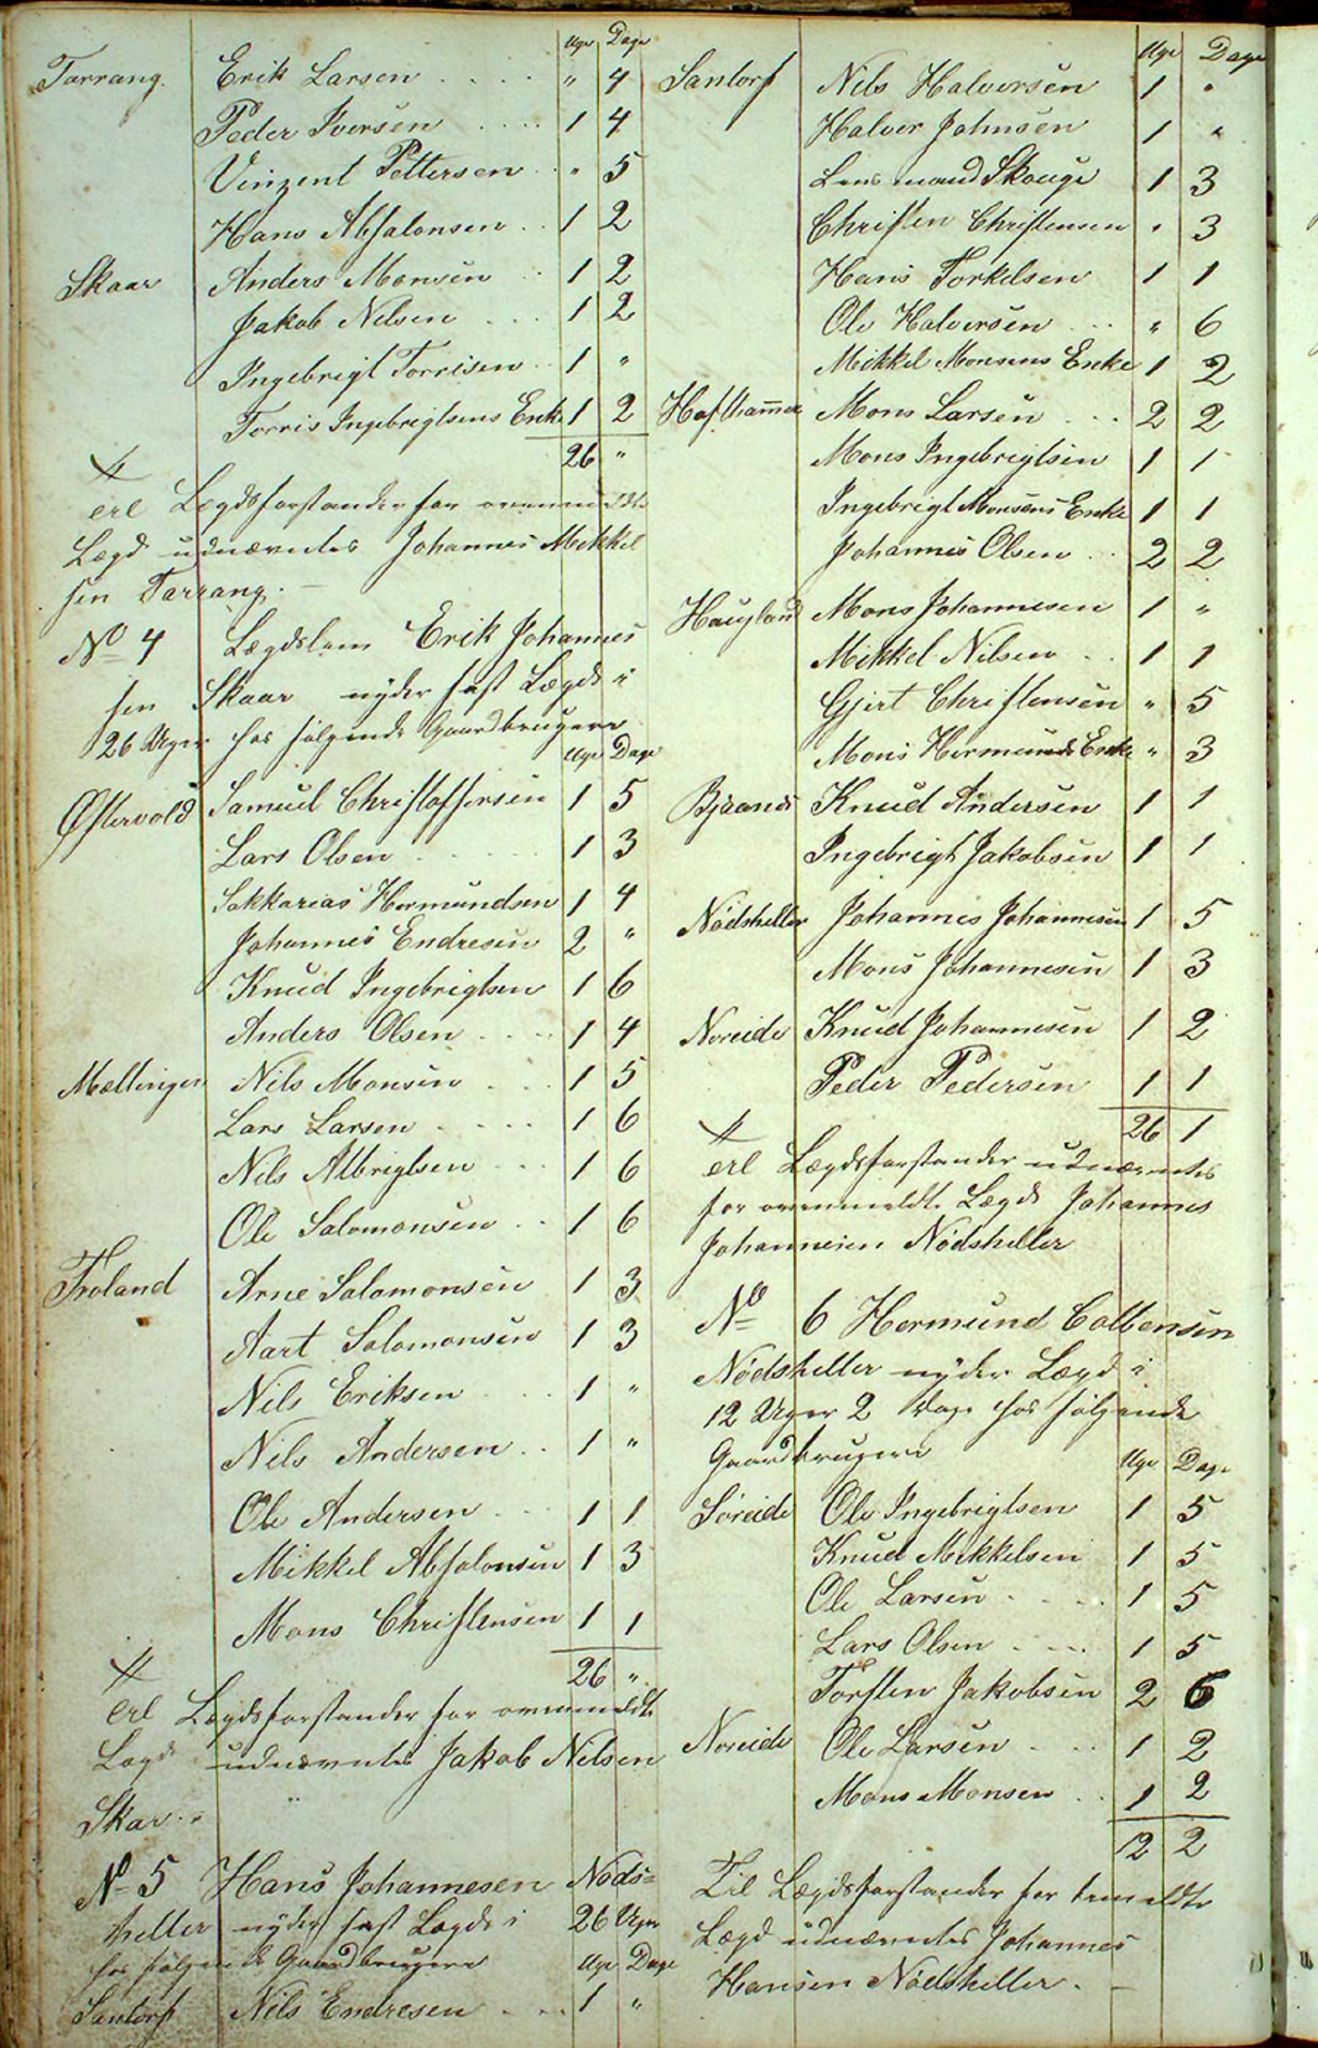 Uge Dage
Tarrang. Erik Larsen .... " 4
Peder Iversen .... 1 4
Vinzent Pettersen .. " 5
Hans Absalonsen .. 1 2
Skaar Anders Monsen .. 1 2
Jakob Nilsen .... 1 2
Ingebrigt Torrisen .. 1 "
Torris Ingebrigtsens Enke 1 2
26 "
Til Lægdsforstander for ovenmeldte
Lægd udnævntes Johannes Mikkel
sen Tarrang. —
No 4 Lægdslem Erik Johannes
sen Skaar nyder fast Lægd i
26 Uger hos følgende Gaardbrugere
Uge Dage
Østervold Samuel Christoffersen 1 5
Lars Olsen ..... 1 3
Sakkarias Hermundsen 1 4
Johannes Endresen 2 "
Knud Ingebrigtsen 1 6
Anders Olsen .... 1 4
Mællingen Nils Monsen ... 1 5
Lars Larsen .... 1 6
Nils Albrigtsen ... 1 6
Ole Salomonsen .. 1 6
Troland Arne Salomonsen 1 3
Aart Salomonsen 1 3
Nils Eriksen .... 1 "
Nils Andersen .. 1 "
Ole Andersen ... 1 1
Mikkel Absalonsen 1 3
Mons Christensen 1 1
26 "
Til Lægdsforstander for ovenmeldte
Lægd udnævntes Jakob Nilsen
Skar. "
No 5 Hans Johannesen Nøds=
heller nyder fast Lægd i 26 Uger
hos følgende Gaardbrugere Uge Dage
Santorf Nils Endresen ... 1 "
Uge Dage
Santorf Nils Halversen 1 "
Halver Johnsen 1 "
Lensmand Skouge 1 3
Christen Christensen " 3
Hans Torkelsen 1 1
Ole Halversen ... " 6
Mikkel Monsens Enke 1 2
Hafthammer Mons Larsen ... 2 2
Mons Ingebrigtsen 1 1
Ingebrigt Monsens Enke 1 1
Johannes Olsen .. 2 2
Haugland Mons Johannesen 1 "
Mikkel Nilsen .. 1 1
Gjert Christensen " 5
Mons Hermunds Enke " 3
Bjaanes Knud Andersen 1 1
Ingebrigt Jakobsen 1 1
Nødsheller Johannes Johannesen 1 5
Mons Johannesen 1 3
Noreide Knud Johannesen 1 2
Peder Pedersen 1 1
26 1
Til Lægdsforstander udnævntes
for ovenmeldte Lægd Johannes
Johannesen Nødsheller
No 6 Hermund Colbensen
Nødsheller nyder Lægd i
12 Uger 2 Dage hos følgende
Gaardbrugere Uge Dage
Søreide Ole Ingebrigtsen 1 5
Knud Mikkelsen 1 5
Ole Larsen .... 1 5
Lars Olsen .... 1 5
Torsten Jakobsen 2 6
Noreide Ole Larsen ... 1 2
Mons Monsen .. 1 2
12 2
Til Lægdsforstander for bemeldte
Lægd udnævntes Johannes
Hansen Nødsheller. —